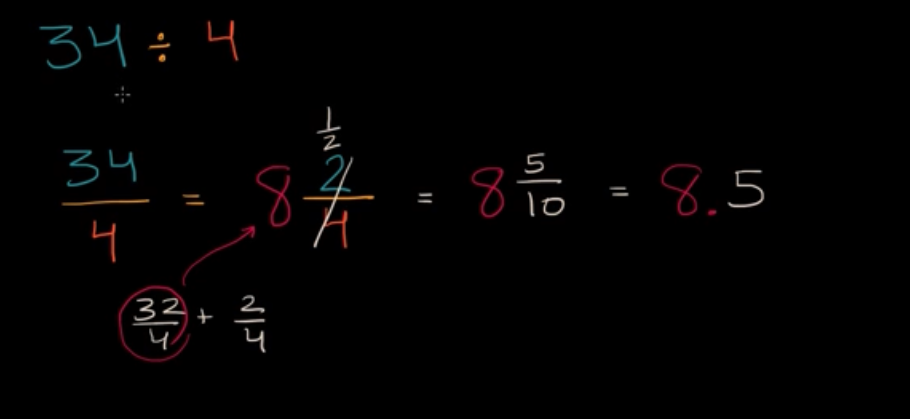 34 ÷ 4
1/2
34/4 = 8 2/4 = 8 5/10 = 8.5
32/4 + 2/4